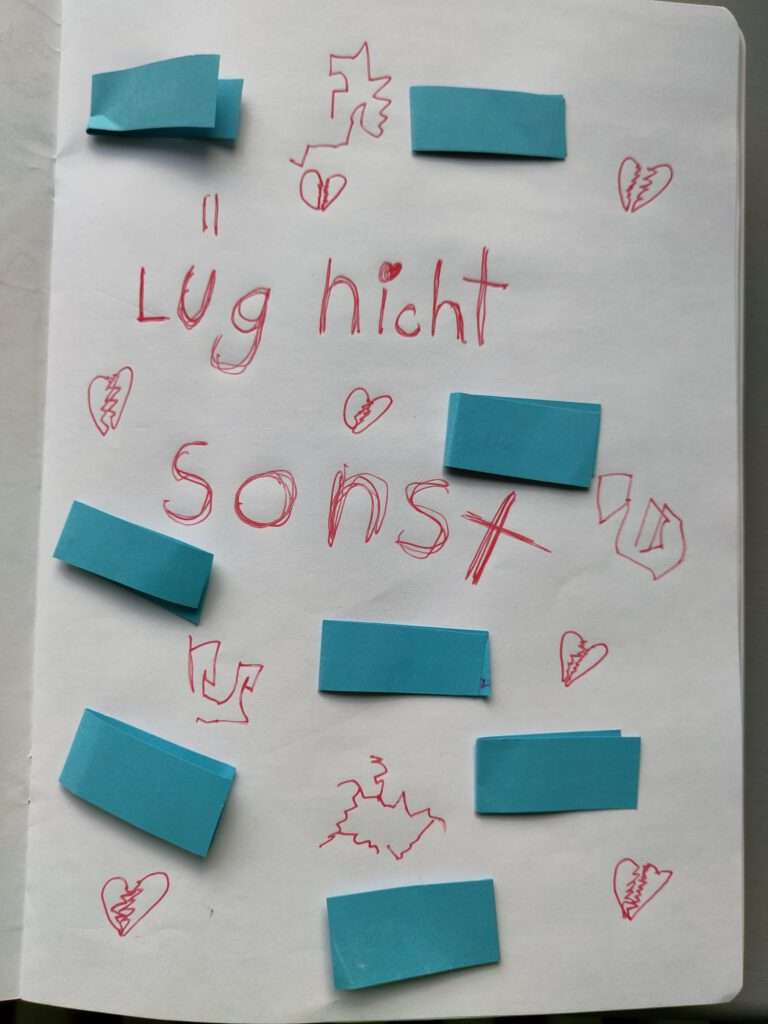 Lüg nicht
sonst